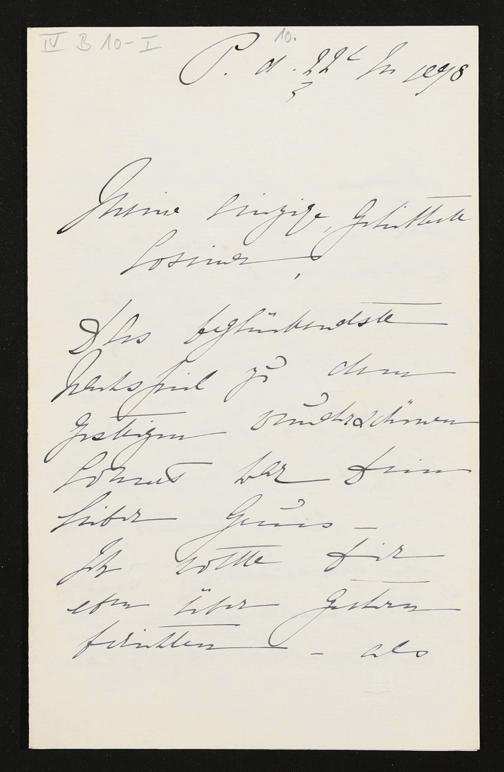 IV B 10-I
10.
P. d. 22t 1898
Meine einzige, geliebteste
Cosima,
Das beglückendste
Nachspiel zu dem
gestrigen wunderschönen
war Dein
lieber Gruss –
Ich wollte Dir
eben über Gestern
berichten – als